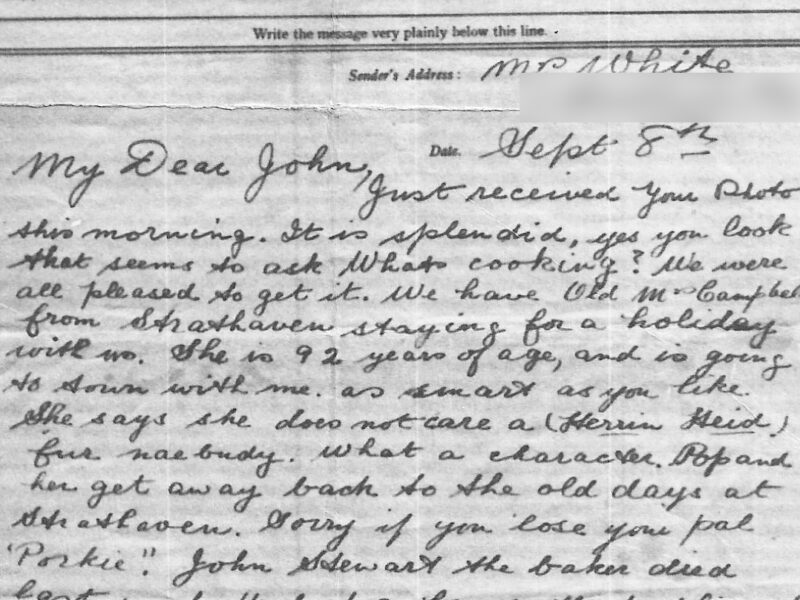 Write the message very plainly below this line.
Sender's Address: Mrs White
Date. Sept 8th
My Dear John,
Just received Your Photo
this morning. It is splendid, yes you look
that seems to ask Whats cooking? We were
all pleased to get it. We have Old Mrs Campbell
from Strathaven staying for a holiday
with us. She is 92 years of age, and is going
to town with me. as smart as you like
She says she does not care a (Herrin Heid)
fur naebudy. What a character. Pop and
her get away back to the old days at
Strathaven. Sorry if you lose your pal
"Porkie". John Stewart the baker died
last